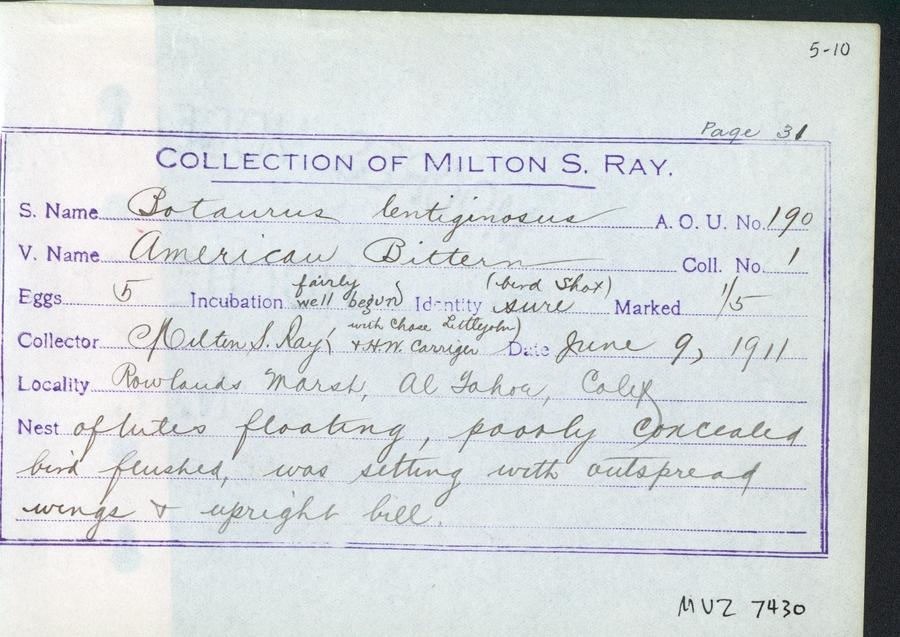 5-10
Page 31
COLLECTION OF MILTON S. RAY.
S. Name Botaurus lentiginosus A. O. U. No. 190
V. Name American Bittern Coll. No. 1
Eggs 5 Incubation fairly well begun Identity (bird shot) sure Marked 1/5
Collector Milton S. Ray (with Chase Littlejohn) & H.W. Carriger Date June 9, 1911
Locality Rowlands Marsh, Al Tahoe, Calif
Nest of tules floating, poorly concealed
bird flushed, was setting with outspread
wings & upright bill.
MVZ 7430